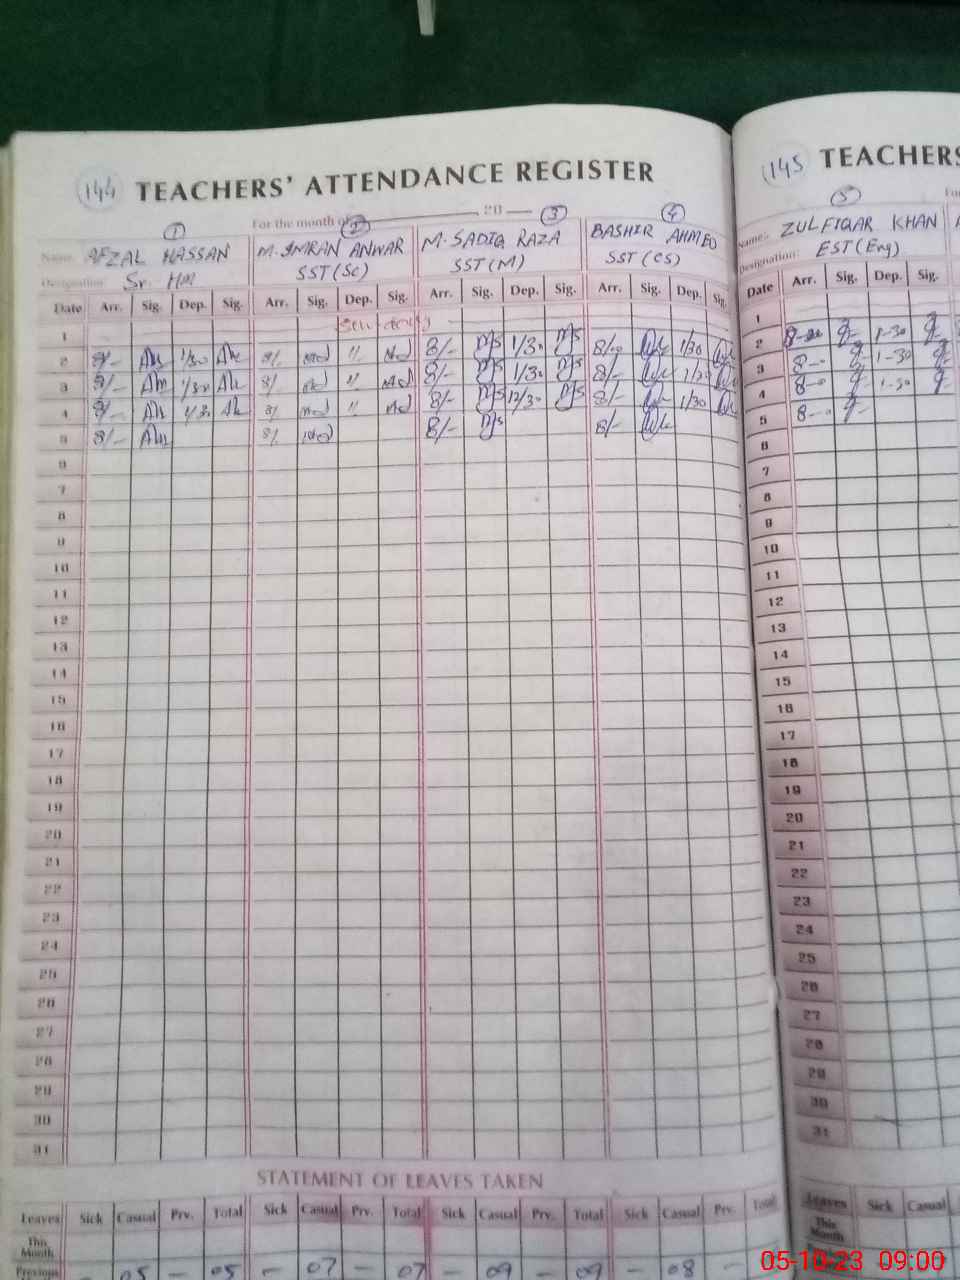 144 TEACHERS' ATTENDANCE REGISTER
For the month of 20
1 2 3 4
Name: AFZAL HASSAN M. IMRAN ANWAR M. SADIQ RAZA BASHIR AHMED
Designation: Sr. HM SST (Sc) SST (M) SST (CS)
Date Arr. Sig. Dep. Sig. Arr. Sig. Dep. Sig. Arr. Sig. Dep. Sig. Arr. Sig. Dep. Sig.
1 Sunday
2 8/- 1/30 8/- 8/- 1/30 8/- 1/30
3 8/- 1/30 8/- 8/- 1/30 8/-
4 8/- 1/30 8/- 8/- 12/30 8/- 1/30
5 8/- 8/- 8/- 8/-
6
7
8
9
10
11
12
13
14
15
16
17
18
19
20
21
22
23
24
25
26
27
28
29
30
31
STATEMENT OF LEAVES TAKEN
Leaves Sick Casual Prv. Total Sick Casual Prv. Total Sick Casual Prv. Total Sick Casual Prv. Total
This Month
Previous 05 - 05 - 07 - 07 - 09 - 09 - 08 -
145 TEACHERS
5
Name:- ZULFIQAR KHAN
Designation: EST (Eng)
Date Arr. Sig. Dep. Sig.
1
2 1-30
3 8-0 1-30
4 8-0 1-30
5 8-0
6
7
8
9
10
11
12
13
14
15
16
17
18
19
20
21
22
23
24
25
26
27
28
29
30
31
Leaves Sick Casual
This Month
05-10-23 09:00